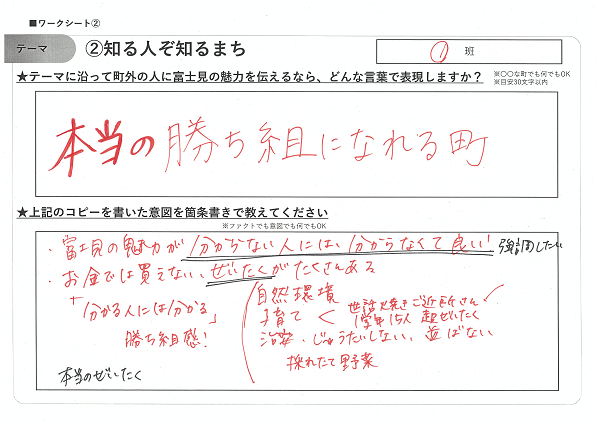 ■ワークシート②
テーマ
②知る人ぞ知るまち
① 班
★テーマに沿って町外の人に富士見の魅力を伝えるなら、どんな言葉で表現しますか?
※〇〇な町でも何でもOK
※目安30文字以内
本当の勝ち組になれる町
★上記のコピーを書いた意図を箇条書きで教えてください
※ファクトでも意図でも何でもOK
・富士見の魅力が分からない人には、分からなくて良い! 強調したい
・お金では買えない、ぜいたくがたくさんある
「分かる人には分かる」
勝ち組感!
自然環境
子育て < 世話焼きご近所さん
1学年15人 超ぜいたく
渋滞・じゅうたいしない、並ばない
採れたて野菜
本当のぜいたく